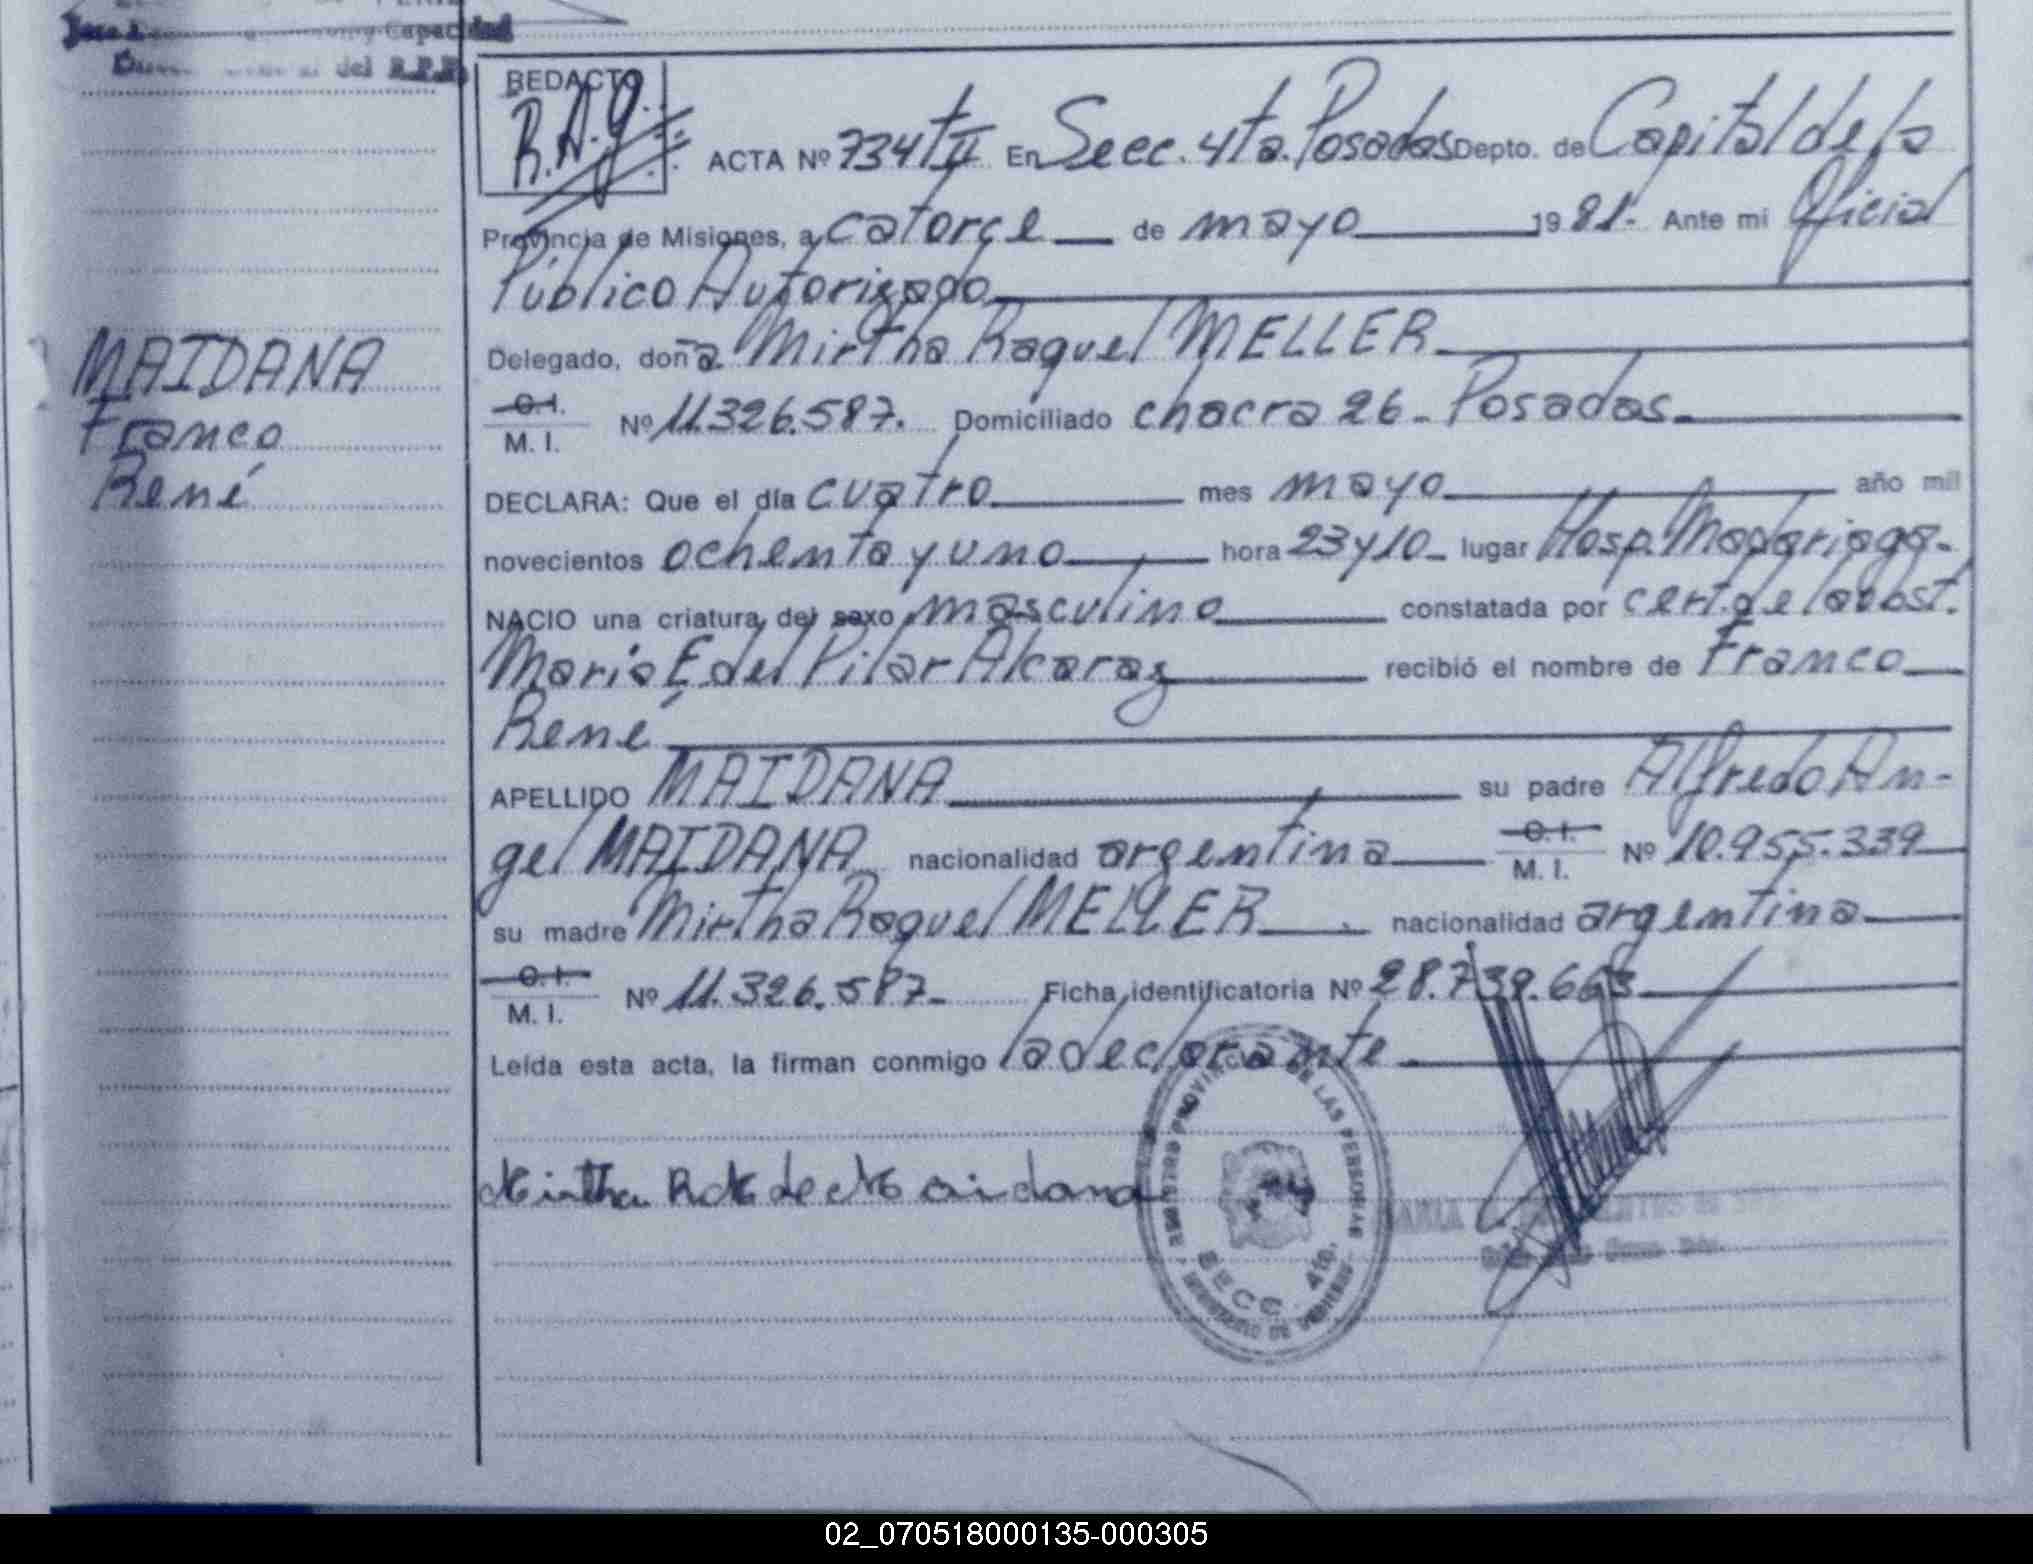 Capacidad
del R.P.P.
REDACTO
R.A.G.
ACTA Nº 734 tº II En Secc. 4ta. Posadas Depto. de Capital de la
Provincia de Misiones, a catorce de mayo 1981.- Ante mi Oficial
Público Autorizado
Delegado, doña Mirtha Raquel MELLER
C.I.
M. I. Nº 11.326.587. Domiciliado chacra 26- Posadas
MAIDANA
Franco
René
DECLARA: Que el día cuatro mes mayo año mil
novecientos ochenta y uno hora 23 y 10 lugar Hosp. Madariaga-
NACIO una criatura del sexo masculino constatada por cert. de la obst.
María E. del Pilar Alcaraz recibió el nombre de Franco
René
APELLIDO MAIDANA su padre Alfredo An-
gel MAIDANA nacionalidad argentina C.I. M. I. Nº 10.955.339
su madre Mirtha Raquel MELLER nacionalidad argentina
C.I.
M. I. Nº 11.326.587- Ficha identificatoria Nº 28.739.663
Leída esta acta, la firman conmigo la declarante
Mirtha R M de Maidana
REGISTRO PROVINCIAL DE LAS PERSONAS
MINISTERIO DE
4ta.
02_070518000135-000305